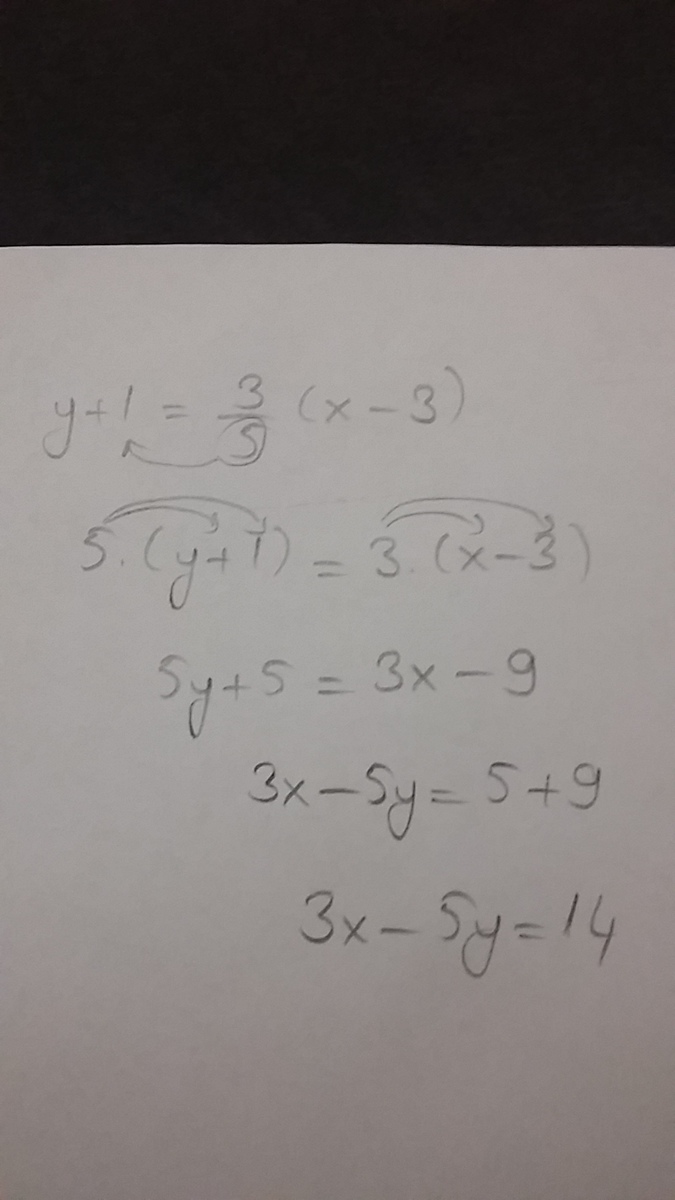 y+1 = 3/5 (x-3)
5.(y+1) = 3.(x-3)
5y+5 = 3x-9
3x-5y = 5+9
3x-5y=14